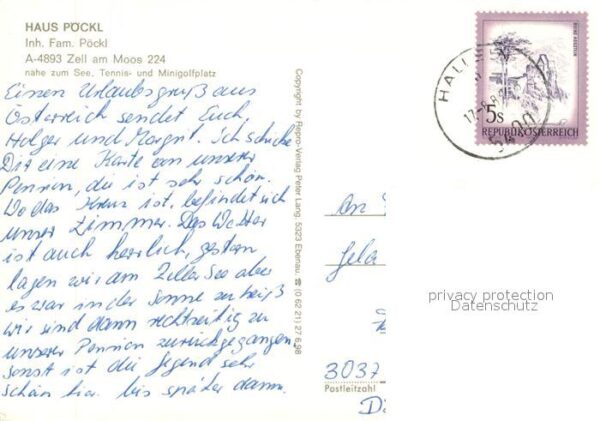 HAUS PÖCKL
Inh. Fam. Pöckl
A-4893 Zell am Moos 224
nahe zum See, Tennis- und Minigolfplatz
Einen Urlaubsgruß aus
Österreich sendet Euch,
Holger und Margrit. Ich schicke
Dir eine Karte von unserer
Pension, die ist sehr schön.
Wo das Kreuz ist, befindet sich
unser Zimmer. Das Wetter
ist auch herrlich, gestern
lagen wir am Zeller See aber
es war in der Sonne zu heiß
wir sind dann rechtzeitig zu
unserer Pension zurückgegangen,
sonst ist die Gegend sehr
schön hier. bis später dann.
Copyright by Repro-Verlag Peter Lang, 5323 Ebenau, ☎ (0 62 21) 27 6 98
5s
REPUBLIK ÖSTERREICH
HALL
5400
An
3037
Postleitzahl
privacy protection
Datenschutz